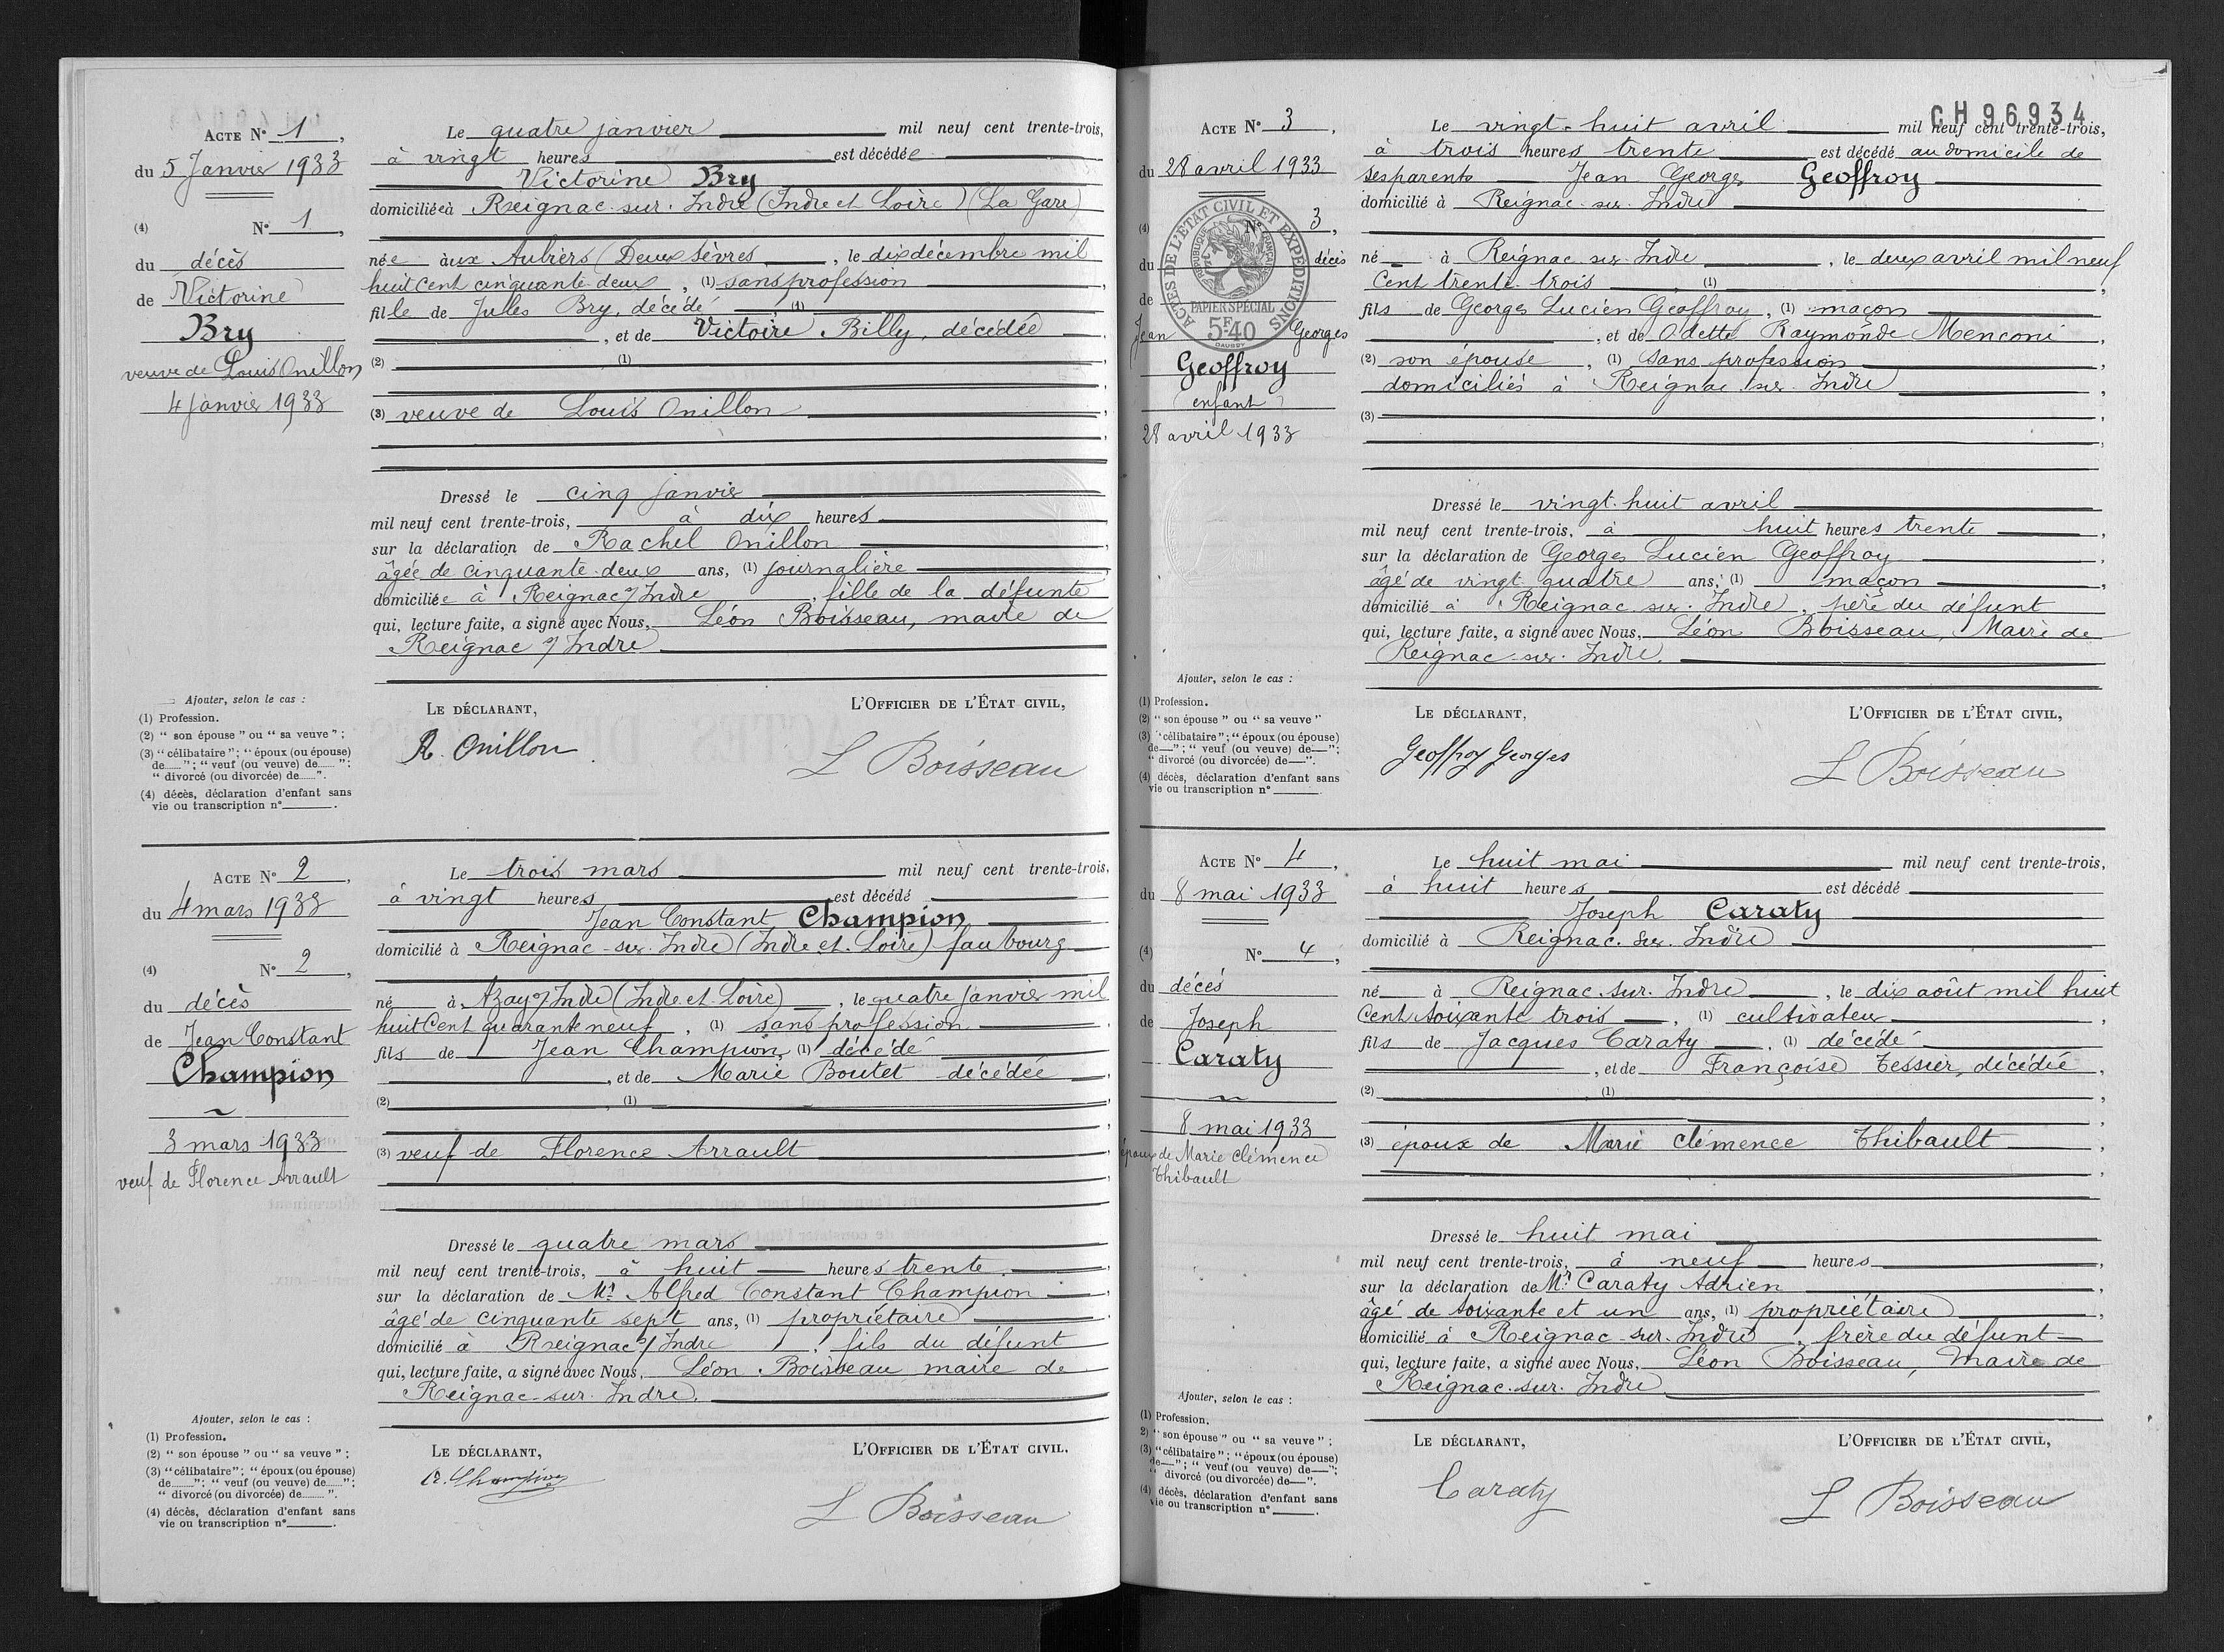 ACTE N° 1,
du 5 Janvier 1933
(4) N° 1,
du décès
de Victorine
Bry
veuve de Louis Onillon
4 janvier 1933
Le quatre janvier mil neuf cent trente-trois,
à vingt heures est décédée
Victorine Bry
domiciliée à Reignac-sur-Indre (Indre et Loire) (La Gare)
née aux Aubiers (Deux Sèvres, le dix décembre mil
huit cent cinquante deux, (1) sans profession
fille de Jules Bry, décédé (1)
, et de Victoire Billy, décédée
(2) (1)
(3) veuve de Louis Onillon
Dressé le cinq janvier
mil neuf cent trente-trois, à dix heures
sur la déclaration de Rachel Onillon
âgée de cinquante deux ans, (1) journalière
domiciliée à Reignac s/ Indre, fille de la défunte
qui, lecture faite, a signé avec Nous, Léon Boisseau, maire de
Reignac s/ Indre
Ajouter, selon le cas :
(1) Profession.
(2) " son épouse " ou " sa veuve " ;
(3) " célibataire " ; " époux (ou épouse)
de...... " ; " veuf (ou veuve) de...... " ;
" divorcé (ou divorcée) de...... ".
(4) décès, déclaration d'enfant sans
vie ou transcription n° .
LE DÉCLARANT,
L'OFFICIER DE L'ÉTAT CIVIL,
R. Onillon
L Boisseau
ACTE N° 2,
du 4 mars 1933
(4) N° 2,
du décès
de Jean Constant
Champion
3 mars 1933
veuf de Florence Arrault
Le trois mars mil neuf cent trente-trois,
à vingt heures est décédé
Jean Constant Champion
domicilié à Reignac-sur-Indre (Indre et Loire) faubourg
né à Azay s/ Indre (Indre et Loire), le quatre janvier mil
huit Cent quarante neuf, (1) sans profession
fils de Jean Champion, (1) décédé
, et de Marie Boutet décédée
(2) , (1)
(3) veuf de Florence Arrault
Dressé le quatre mars
mil neuf cent trente-trois, à huit heures trente
sur la déclaration de Mr. Alfred Constant Champion
âgé de cinquante sept ans, (1) propriétaire
domicilié à Reignac s/ Indre, fils du défunt
qui, lecture faite, a signé avec Nous, Léon Boisseau maire de
Reignac-sur-Indre.
Ajouter, selon le cas :
(1) Profession.
(2) " son épouse " ou " sa veuve " ;
(3) " célibataire " ; " époux (ou épouse)
de...... " ; " veuf (ou veuve) de...... " ;
" divorcé (ou divorcée) de...... ".
(4) décès, déclaration d'enfant sans
vie ou transcription n° .
LE DÉCLARANT,
L'OFFICIER DE L'ÉTAT CIVIL.
Champion
L Boisseau
CH 96934
ACTE N° 3,
du 28 avril 1933
ACTES DE L'ÉTAT CIVIL ET EXPÉDITIONS
RÉPUBLIQUE FRANÇAISE
PAPIER SPÉCIAL
5F40
(4) N° 3,
du décès
de
Jean Georges
Geoffroy
enfant
28 avril 1933
Le vingt-huit avril mil neuf cent trente-trois,
à trois heures trente est décédé au domicile de
ses parents Jean Georges Geoffroy
domicilié à Reignac-sur-Indre
né à Reignac sur Indre, le deux avril mil neuf
Cent trente-trois (1)
fils de Georges Lucien Geoffroy, (1) maçon
, et de Odette Raymonde Menconi,
(2) son épouse, (1) sans profession,
domiciliés à Reignac sur Indre,
(3)
Dressé le vingt-huit avril
mil neuf cent trente-trois, à huit heures trente
sur la déclaration de Georges Lucien Geoffroy
âgé de vingt quatre ans, (1) maçon
domicilié à Reignac sur Indre, père du défunt
qui, lecture faite, a signé avec Nous, Léon Boisseau, Maire de
Reignac-sur-Indre.
Ajouter, selon le cas :
(1) Profession.
(2) " son épouse " ou " sa veuve "
(3) " célibataire " ; " époux (ou épouse)
de— " ; " veuf (ou veuve) de— " ;
" divorcé (ou divorcée) de— ".
(4) décès, déclaration d'enfant sans
vie ou transcription n° .
LE DÉCLARANT,
L'OFFICIER DE L'ÉTAT CIVIL,
Geoffroy Georges
L Boisseau
ACTE N° 4,
du 8 mai 1933
(4) N° 4,
du décés
de Joseph
Caraty
8 mai 1933
époux de Marie Clémence
Thibault
Le huit mai mil neuf cent trente-trois,
à huit heures est décédé
Joseph Caraty
domicilié à Reignac-sur-Indre
né à Reignac-sur-Indre, le dix août mil huit
Cent soixante trois, (1) cultivateur,
fils de Jacques Caraty, (1) décédé
, et de Françoise Tessier, décédée,
(2) (1)
(3) époux de Marie Clémence Thibault
Dressé le huit mai
mil neuf cent trente-trois, à neuf heures
sur la déclaration de Mr Caraty Adrien
âgé de soixante et un ans, (1) propriétaire
domicilié à Reignac-sur-Indre, frère du défunt
qui, lecture faite, a signé avec Nous, Léon Boisseau, Maire de
Reignac-sur-Indre
Ajouter, selon le cas :
(1) Profession.
2) " son épouse " ou " sa veuve " ;
(3) " célibataire " ; " époux (ou épouse)
de— " ; " veuf (ou veuve) de— " ;
" divorcé (ou divorcée) de— ".
(4) décès, déclaration d'enfant sans
vie ou transcription n° .
LE DÉCLARANT,
L'OFFICIER DE L'ÉTAT CIVIL,
Caraty
L Boisseau